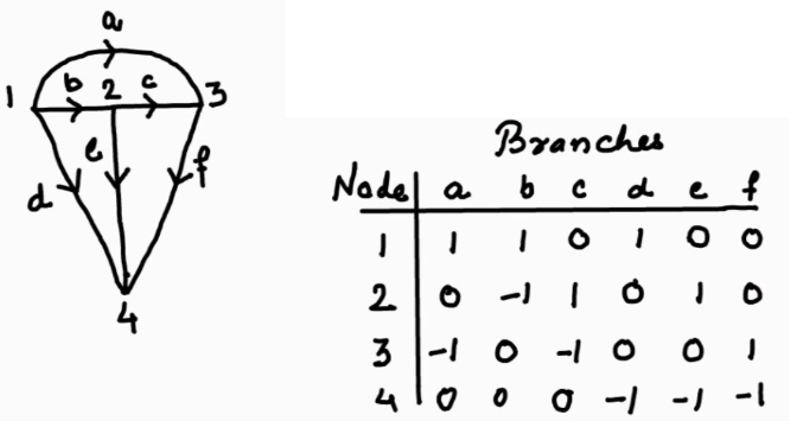 a
1 b 2 c 3
d e f
4
Branches
Node a b c d e f
1 1 1 0 1 0 0
2 0 -1 1 0 1 0
3 -1 0 -1 0 0 1
4 0 0 0 -1 -1 -1